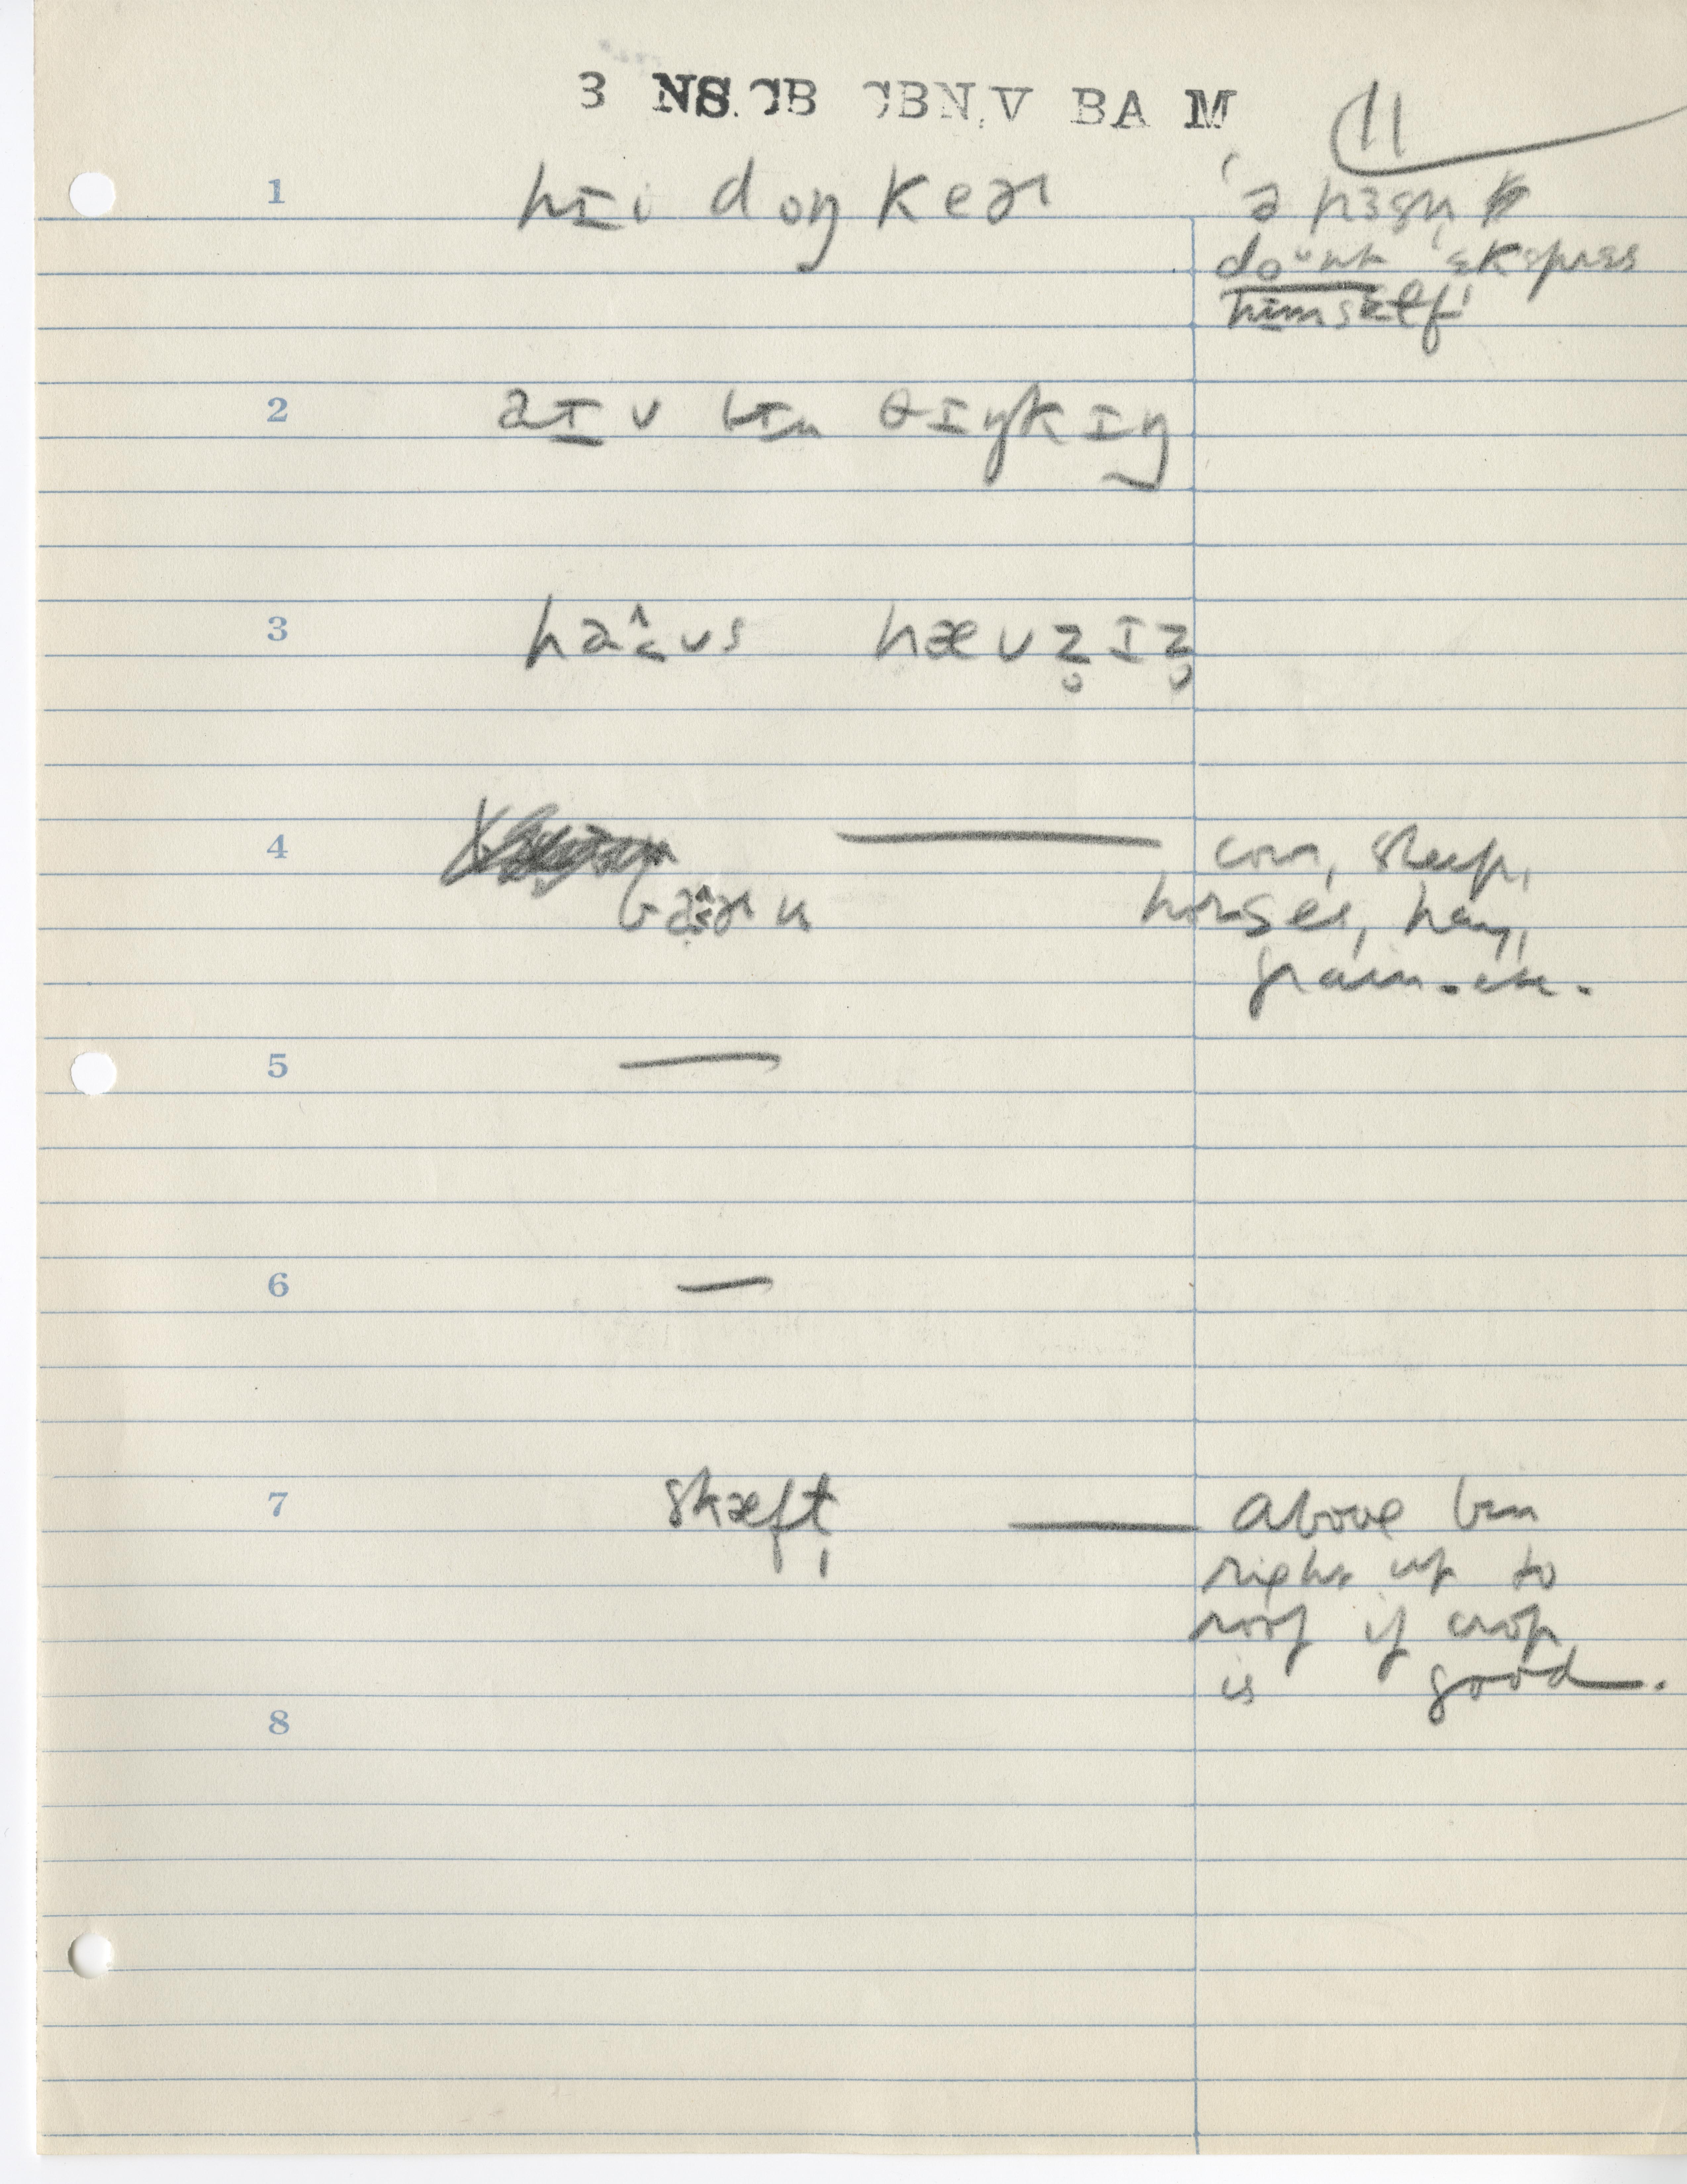 3 NS. CB CBN.V BA M
11
1 hɪi doŋ keɚ
dount ɛkspres
himself'
2 bɪn θɪŋkɪŋ
3 hævz̥ɪz̥
4 cow, sheep,
horses, hay,
grain. etc.
5 —
6 —
7 skæft — above bin
right up to
roof if crop
is good.
8